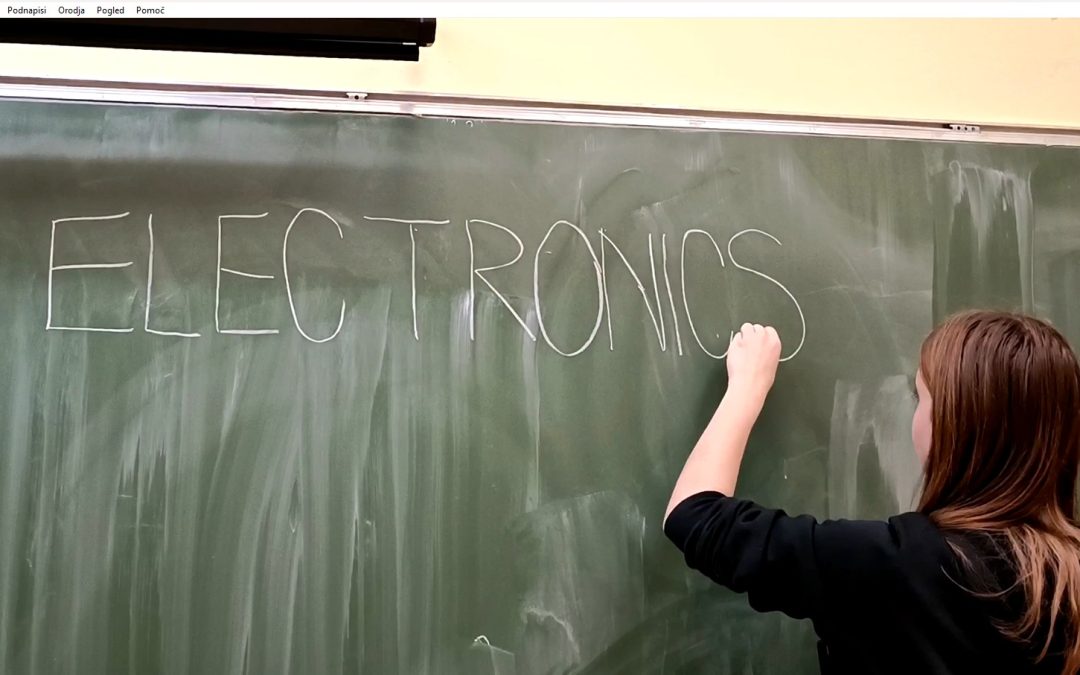 Podnapisi Orodja Pogled Pomoč
ELECTRONICS